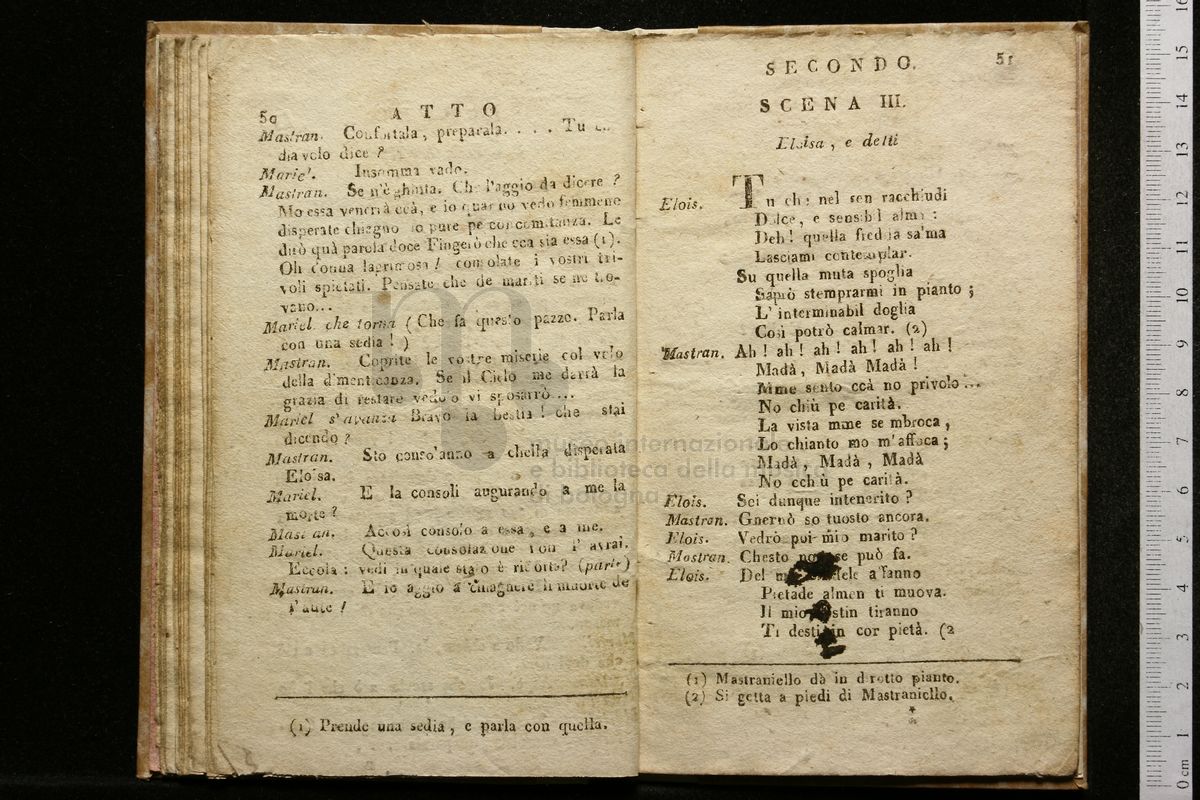 50
ATTO
Mastran. Confortala, preparala. . . . Tu
diavolo dice ?
Mariel. Insomma vado.
Mastran. Se n'è ghiuta. Che l'aggio da dicere ?
Mo essa venerrà ccà, e io quanno vedo femmene
disperate chiagno io pure pe concomitanza. Le
dirò quà parola doce Fingerò che cca sia essa (1).
Oh donna lagrimosa ! consolate i vostri tri-
voli spietati. Pensate che de mariti se ne tro-
vano...
Mariel che torna ( Che fa questo pazzo. Parla
con una sedia ! )
Mastran. Coprite le vostre miserie col velo
della d'menticanza. Se il Cielo me darrà la
grazia di restare vedovo vi sposarrò ...
Mariel s'avanza Bravo la bestia ! che stai
dicendo ?
Mastran. Sto consolanno a chella disperata
Eloisa.
Mariel. E la consoli augurando a me la
morte ?
Mastran. Accosì consolo a essa, e a me.
Mariel. Questa consolazione non l' avrai.
Eccola : vedi in quale stato è ridotta? (parte)
Mastran. E io aggio a chiagnere li muorte de
l'aute !
(1) Prende una sedia, e parla con quella.
SECONDO.
51
SCENA III.
Eloisa, e detti
Elois. Tu che nel sen racchiudi
Dolce, e sensibil alma :
Deh! quella fredda salma
Lasciami contemplar.
Su quella muta spoglia
Saprò stemprarmi in pianto ;
L' interminabil doglia
Così potrò calmar. (2)
Mastran. Ah ! ah ! ah ! ah ! ah ! ah !
Madà, Madà Madà !
Mme sento ccà no privolo ...
No chiù pe carità.
La vista mme se mbroca,
Lo chianto mo m'affoca ;
Madà, Madà, Madà
No cchiù pe carità.
Elois. Sei dunque intenerito ?
Mastran. Gnernò so tuosto ancora.
Elois. Vedrò poi mio marito ?
Mostran. Chesto se può fa.
Elois. Del affanno
Pietade almen ti muova.
Il mio tiranno
Ti desti in cor pietà. (2
(1) Mastraniello dà in dirotto pianto.
(2) Si getta a piedi di Mastraniello.
museo internazionale
e biblioteca della musica
di bologna